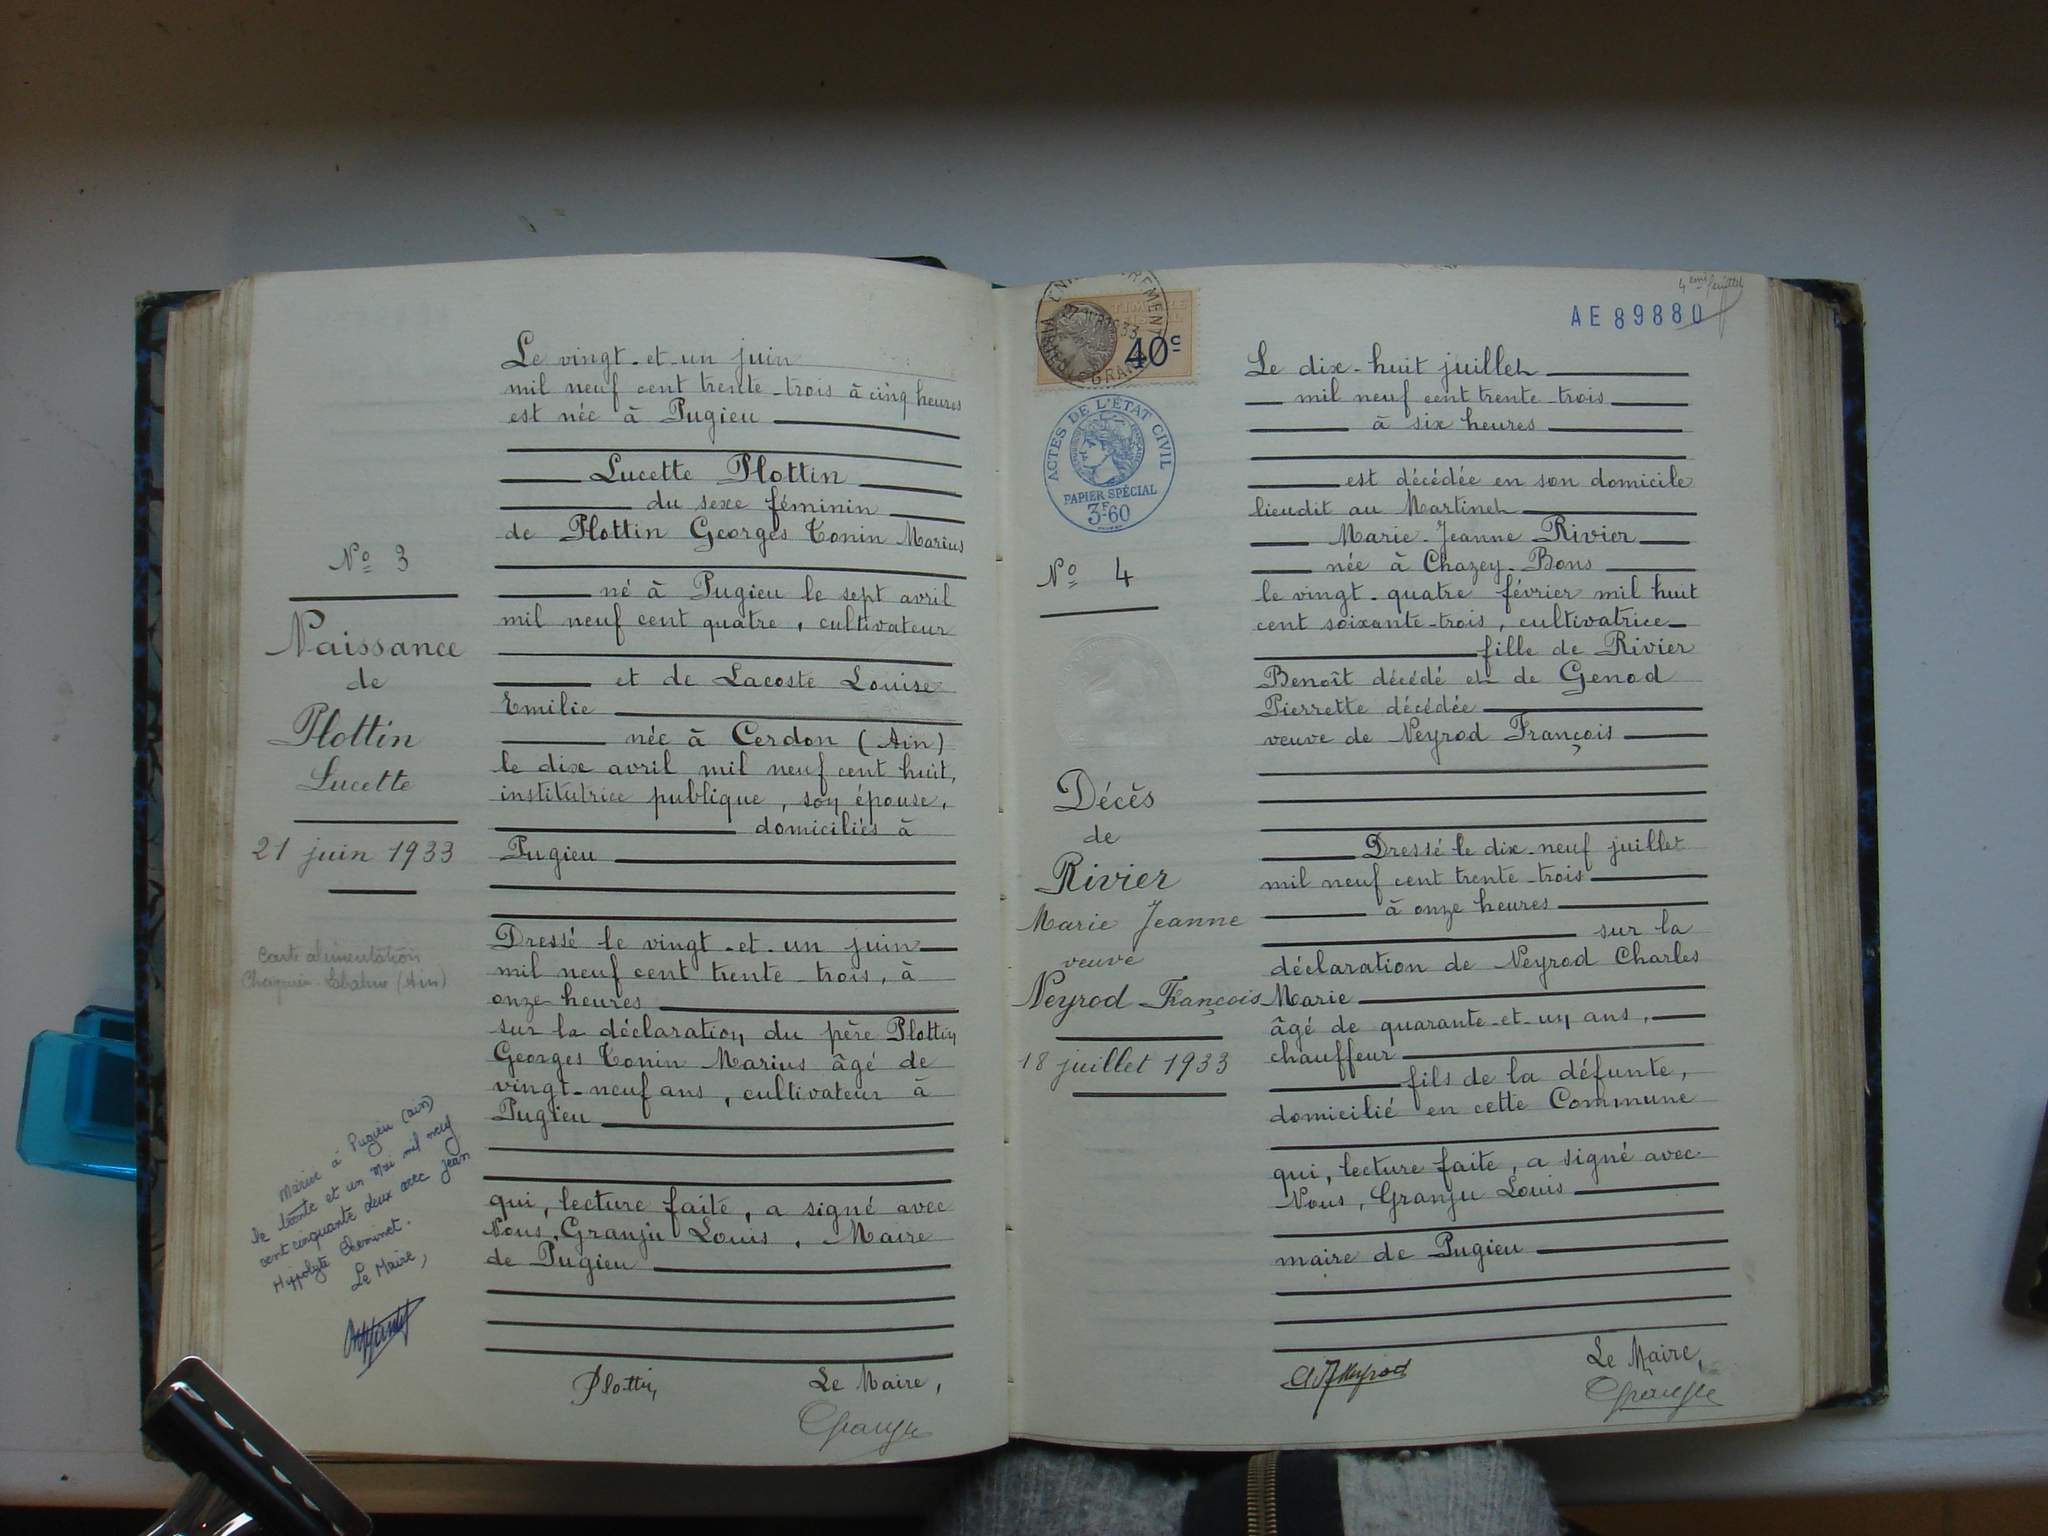 Le vingt-et-un juin
mil neuf cent trente-trois à cinq heures
est née à Pugieu
Lucette Plottin
du sexe féminin
de Plottin Georges Tonin Marius
né à Pugieu le sept avril
mil neuf cent quatre, cultivateur
et de Lacoste Louise
Emilie
née à Cerdon (Ain)
le dix avril mil neuf cent huit,
institutrice publique, son épouse,
domiciliés à
Pugieu
Dressé le vingt-et-un juin
mil neuf cent trente-trois, à
onze heures
sur la déclaration du père Plottin
Georges Tonin Marius âgé de
vingt-neuf ans, cultivateur à
Pugieu
qui, lecture faite, a signé avec
Nous, Granju Louis, Maire
de Pugieu
Plottin
Le Maire,
Granju
No 3
Naissance
de
Plottin
Lucette
21 juin 1933
Carte alimentation
(Ain)
Mariée à Pugieu (Ain)
le trente et un Mai mil neuf
cent cinquante deux avec Jean
Hippolyte Cheminet.
Le Maire,
4eme feuillet
AE 89880
40c
ACTES DE L'ÉTAT CIVIL
PAPIER SPÉCIAL
3F60
No 4
Décès
de
Rivier
Marie Jeanne
veuve
Neyrod François
18 juillet 1933
Le dix-huit juillet
mil neuf cent trente-trois
à six heures
est décédée en son domicile
lieudit au Martinet
Marie-Jeanne Rivier
née à Chazey-Bons
le vingt-quatre février mil huit
cent soixante-trois, cultivatrice
fille de Rivier
Benoît décédé et de Genod
Pierrette décédée
veuve de Neyrod François
Dressé le dix-neuf juillet
mil neuf cent trente-trois
à onze heures
sur la
déclaration de Neyrod Charles
Marie
âgé de quarante-et-un ans,
chauffeur
fils de la défunte,
domicilié en cette Commune
qui, lecture faite, a signé avec
Nous, Granju Louis
maire de Pugieu
Neyrod
Le Maire,
Granju